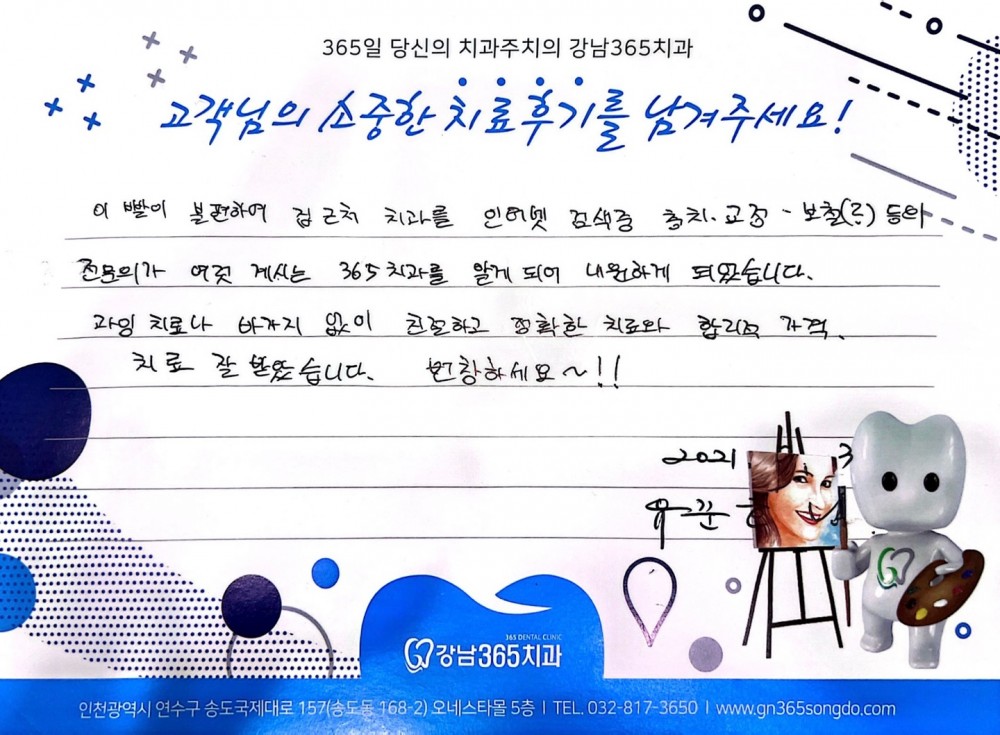 365일 당신의 치과주치의 강남365치과
고객님의 소중한 치료후기를 남겨주세요!
이빨이 불편하여 집 근처 치과를 인터넷 검색중 충치·교정-보철(른) 등의
전문의가 여럿 계시는 365치과를 알게 되어 내원하게 되었습니다.
과잉 치료나 바가지 없이 친절하고 정확한 치료와 합리적 가격.
치료 잘 받았습니다. 번창하세요~!!
2021 3
365 DENTAL CLINIC
강남365치과
인천광역시 연수구 송도국제대로 157(송도동 168-2) 오네스타몰 5층 | TEL. 032-817-3650 | www.gn365songdo.com